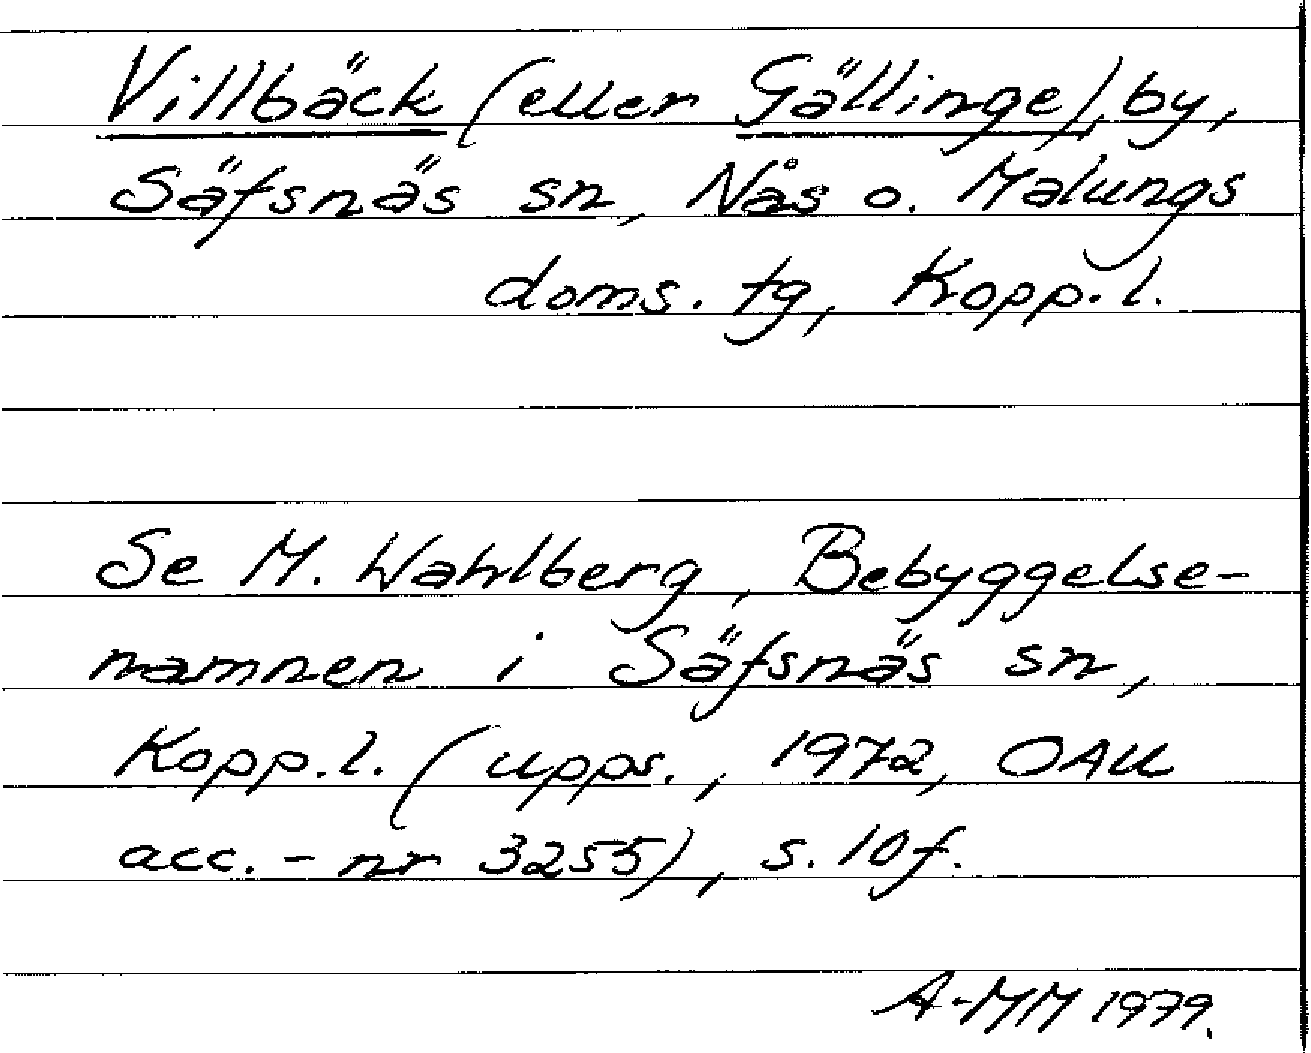 Villbäck (eller Gällinge), by,
Säfsnäs sn, Nås o. Malungs
doms. tg, Kopp. l.
Se M. Wahlberg, Bebyggelse-
namnen i Säfsnäs sn,
Kopp. l. (Upps., 1972, OAU
acc.-nr 3255), s. 10f.
A-MM 1979.